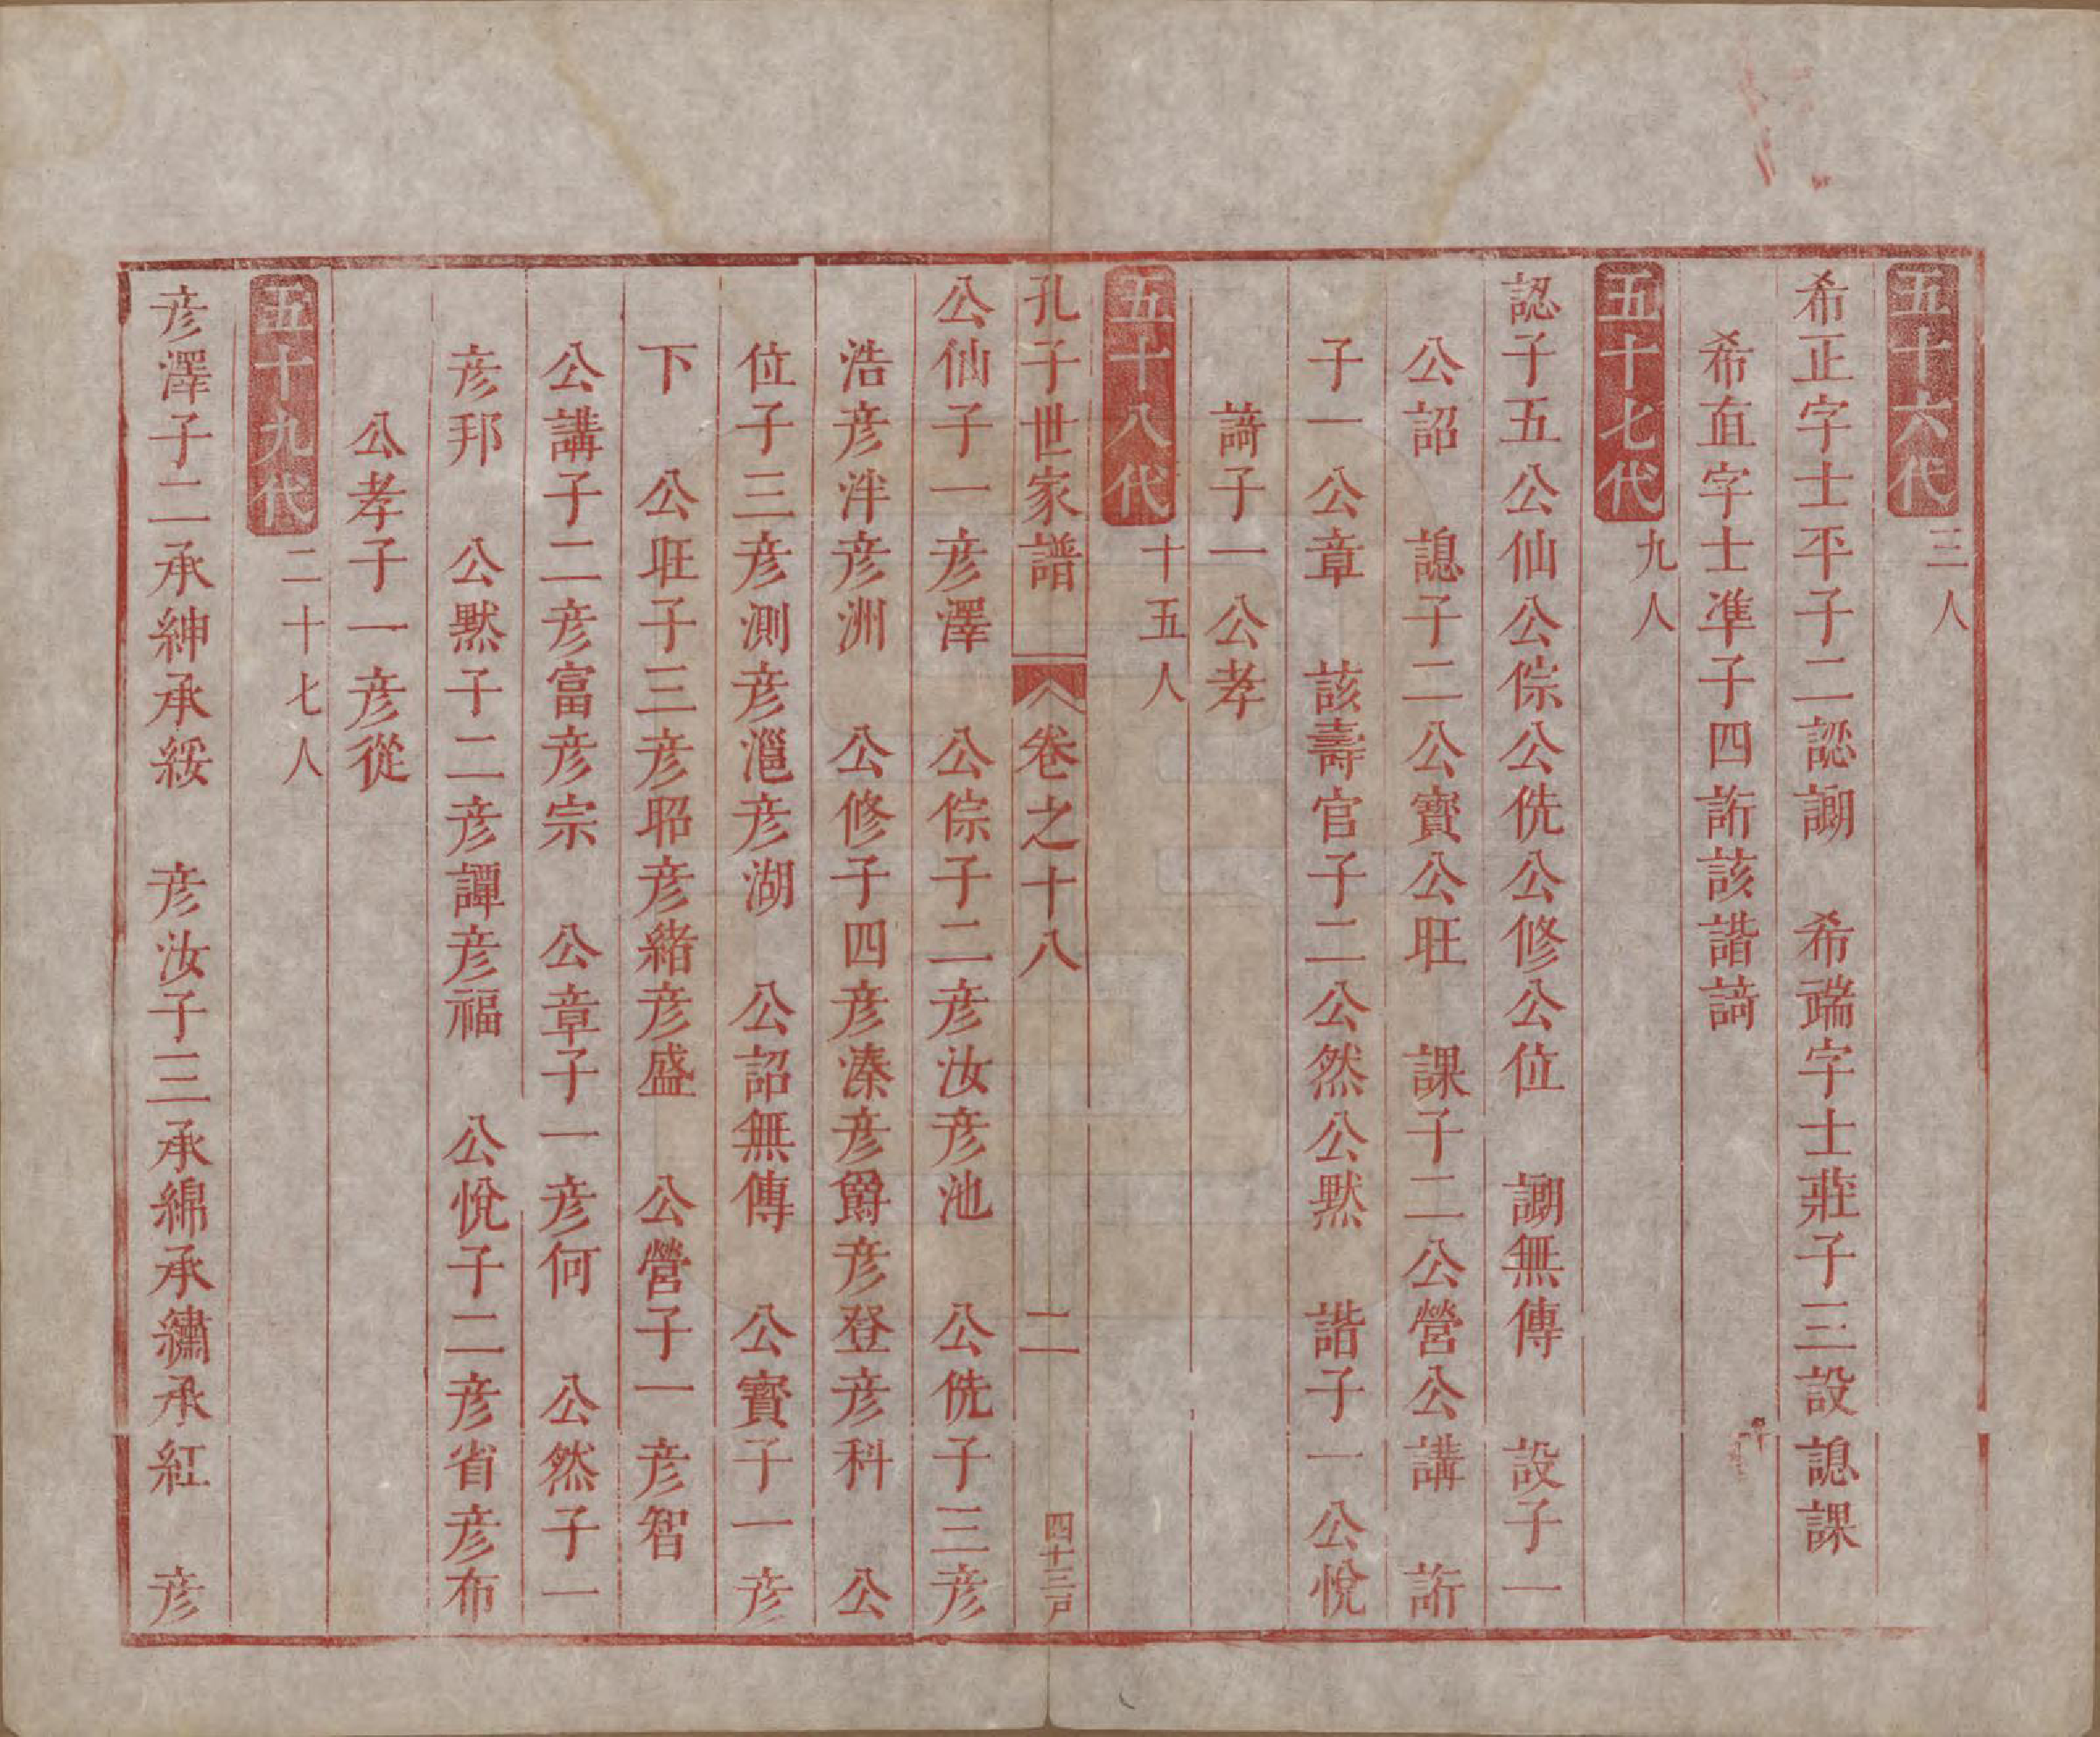 五十六代 三人
希正字士平子二認謝 希端字士莊子三設諰課
希直字士準子四訢該諧諳
五十七代 九人
認子五公仙公倧公侁公修公位 謝無傳 設子一
公詔 諰子二公寳公旺 課子二公營公講 訢
子一公章 該壽官子二公然公默 諧子一公悅
子一公孝
五十八代 十五人
孔子世家譜 卷之十八 二 四十三戸
公仙子一彦澤 公倧子二彦汝彦池 公侁子三彦
浩彦泮彦洲 公修子四彦溱彦爵彦登彦科 公
位子三彦測彦滬彦湖 公詔無傳 公寳子一彦
下 公旺子三彦昭彦緒彦盛 公營子一彦智
公講子二彦富彦宗 公章子一彦何 公然子一
彦邦 公默子二彦譚彦福 公悅子二彦省彦布
公孝子一彦從
五十九代 二十七人
彦澤子二承紳承綏 彦汝子三承綿承繡承紅 彦